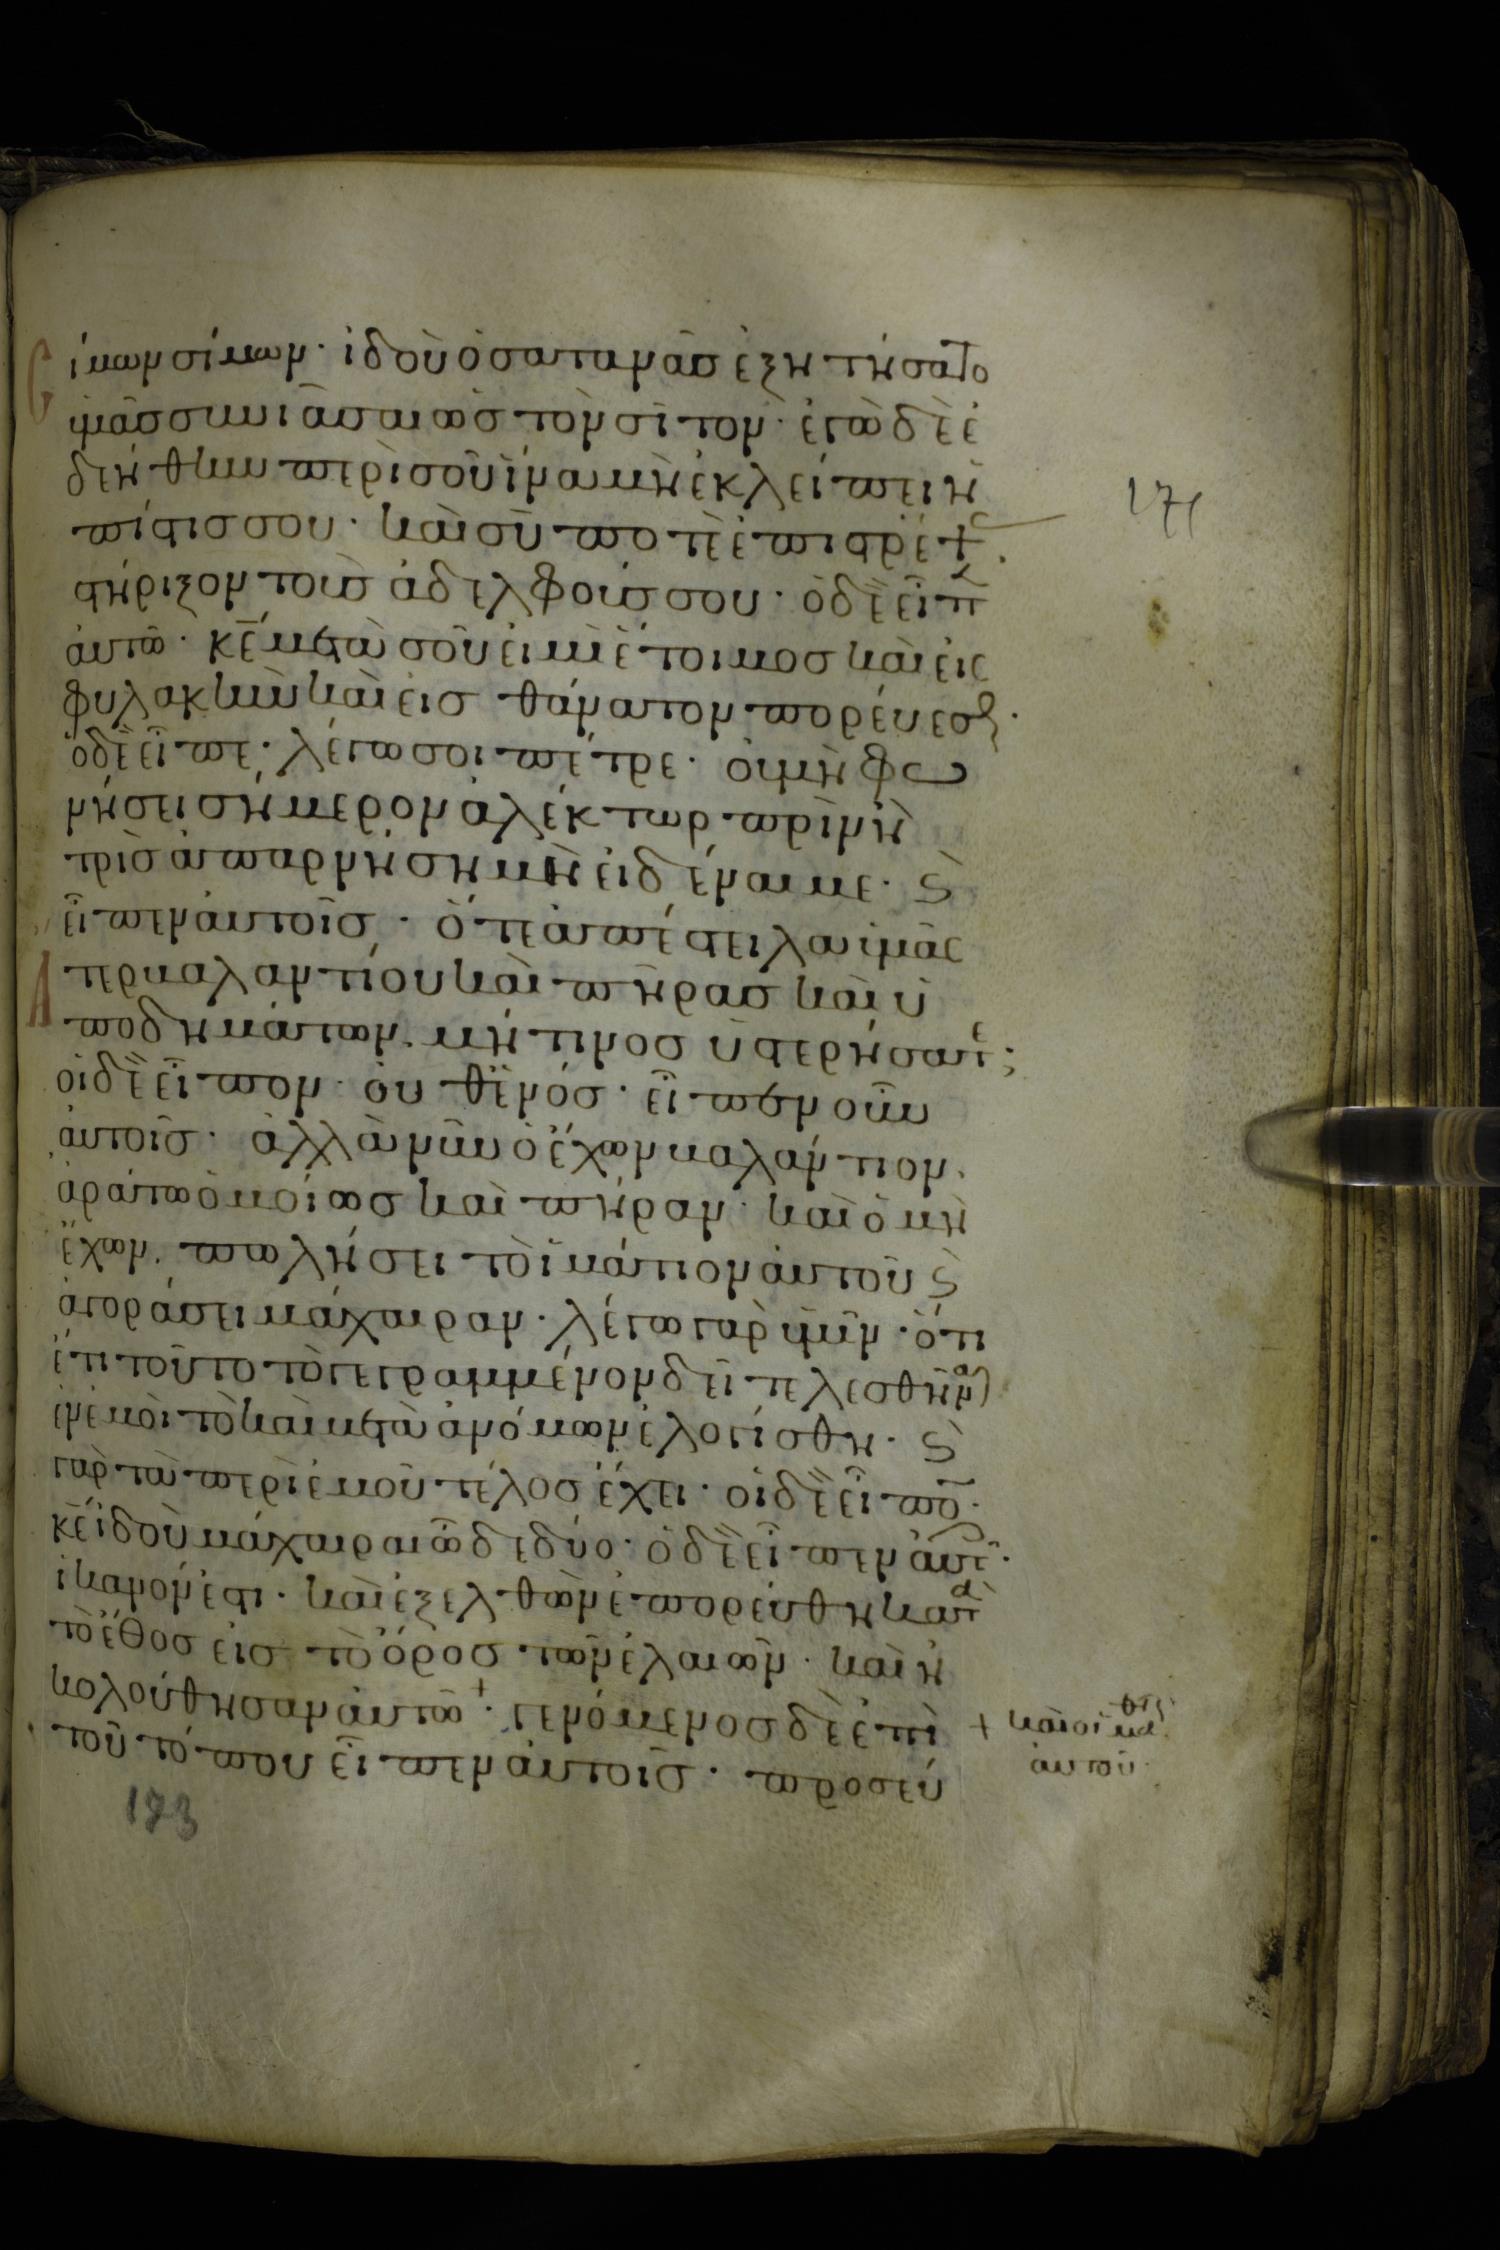 Cίμων σίμων· ἰδοὺ ὁ σατανᾶσ ἐξητήσατο
ὑμᾶσ σινιᾶσαι ὡσ τὸν σῖτον· ἐγὼ δὲ ἐ
δεήθην περὶ σοῦ ἵνα μὴ ἐκλείπη ἡ
πίστισ σου· καὶ σὺ ποτὲ ἐπιστρέψ
171
στήριξον τοὺσ ἀδελφούσ σου· ὁ δὲ εἶπ
αὐτῶ· κε̄ μετὰ σοῦ εἰμὶ ἕτοιμοσ καὶ εἰσ
φυλακὴν καὶ εἰσ θάνατον πορεύεσθ·
ὁ δὲ εἶπε· λέγω σοι πέτρε· οὐ μὴ φω
νήσει σήμερον ἀλέκτωρ πρὶν ἢ
τρὶσ ἀπαρνήση μὴ εἰδέναι με· ϗ
εἶπεν αὐτοῖσ· ὅτε ἀπέστειλα ὑμᾶσ
Ἄτερ βαλαντίου καὶ πήρασ καὶ ὑ
ποδημάτων· μή τινοσ ὑστερήσατε;
οἱ δὲ εἶπον· οὐθενόσ· εἶπεν οὖν
αὐτοῖσ· ἀλλὰ νῦν ὁ ἔχων βαλάντιον·
ἀράτω ὁμοίωσ καὶ πήραν· καὶ ὁ μὴ
ἔχων· πωλήσει τὸ ἱμάτιον αὐτοῦ ϗ
ἀγοράσει μάχαιραν· λέγω γὰρ ὑμῖν· ὅ
τι ἔτι τοῦτο τὸ γεγραμμένον δεῖ τελεσθῆναι
ἐν ἐμοὶ τὸ καὶ μετὰ ἀνόμων ἐλογίσθη· ϗ
γὰρ τὰ περὶ ἐμοῦ τέλοσ ἔχει· οἱ δὲ εἶπο·
κε̄ ἰδοὺ μάχαιραι ὧδε δύο· ὁ δὲ εἶπεν αὐτοῖσ·
ἱκανόν ἐστι· καὶ ἐξελθὼν ἐπορεύθη κατὰ
τὸ ἔθοσ εἰσ τὸ ὄροσ τῶν ἐλαιῶν· καὶ ἠ
κολούθησαν αὐτῶ+· γενόμενοσ δὲ ἐπὶ
+ καὶ οἱ μαθητ
αὐτοῦ·
τοῦ τόπου εἶπεν αὐτοῖσ· προσεύ
173